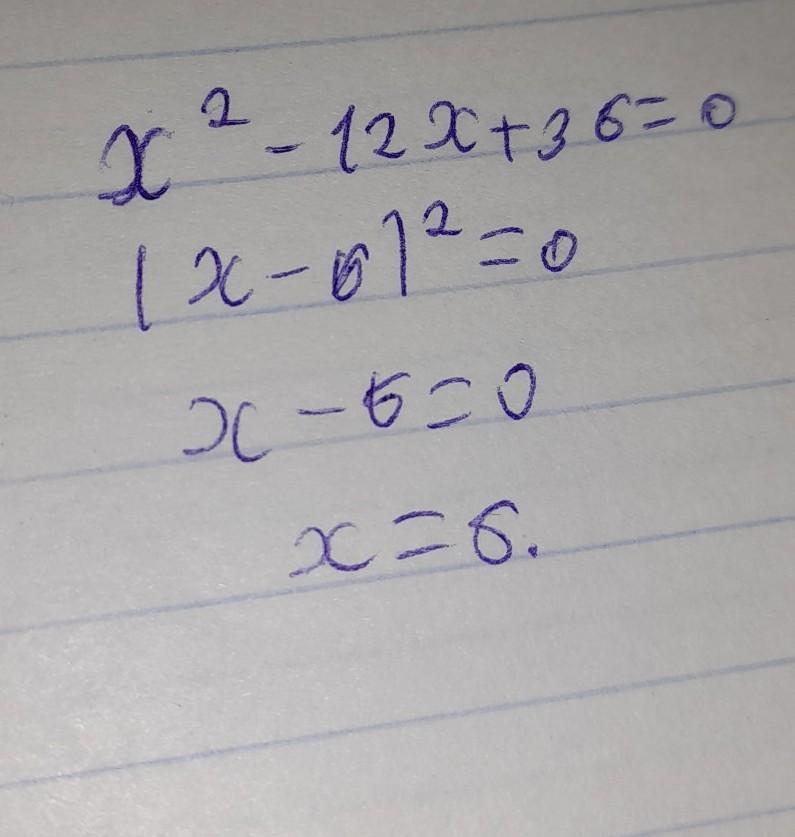 x² - 12x + 36 = 0
|x - 6|² = 0
x - 6 = 0
x = 6.